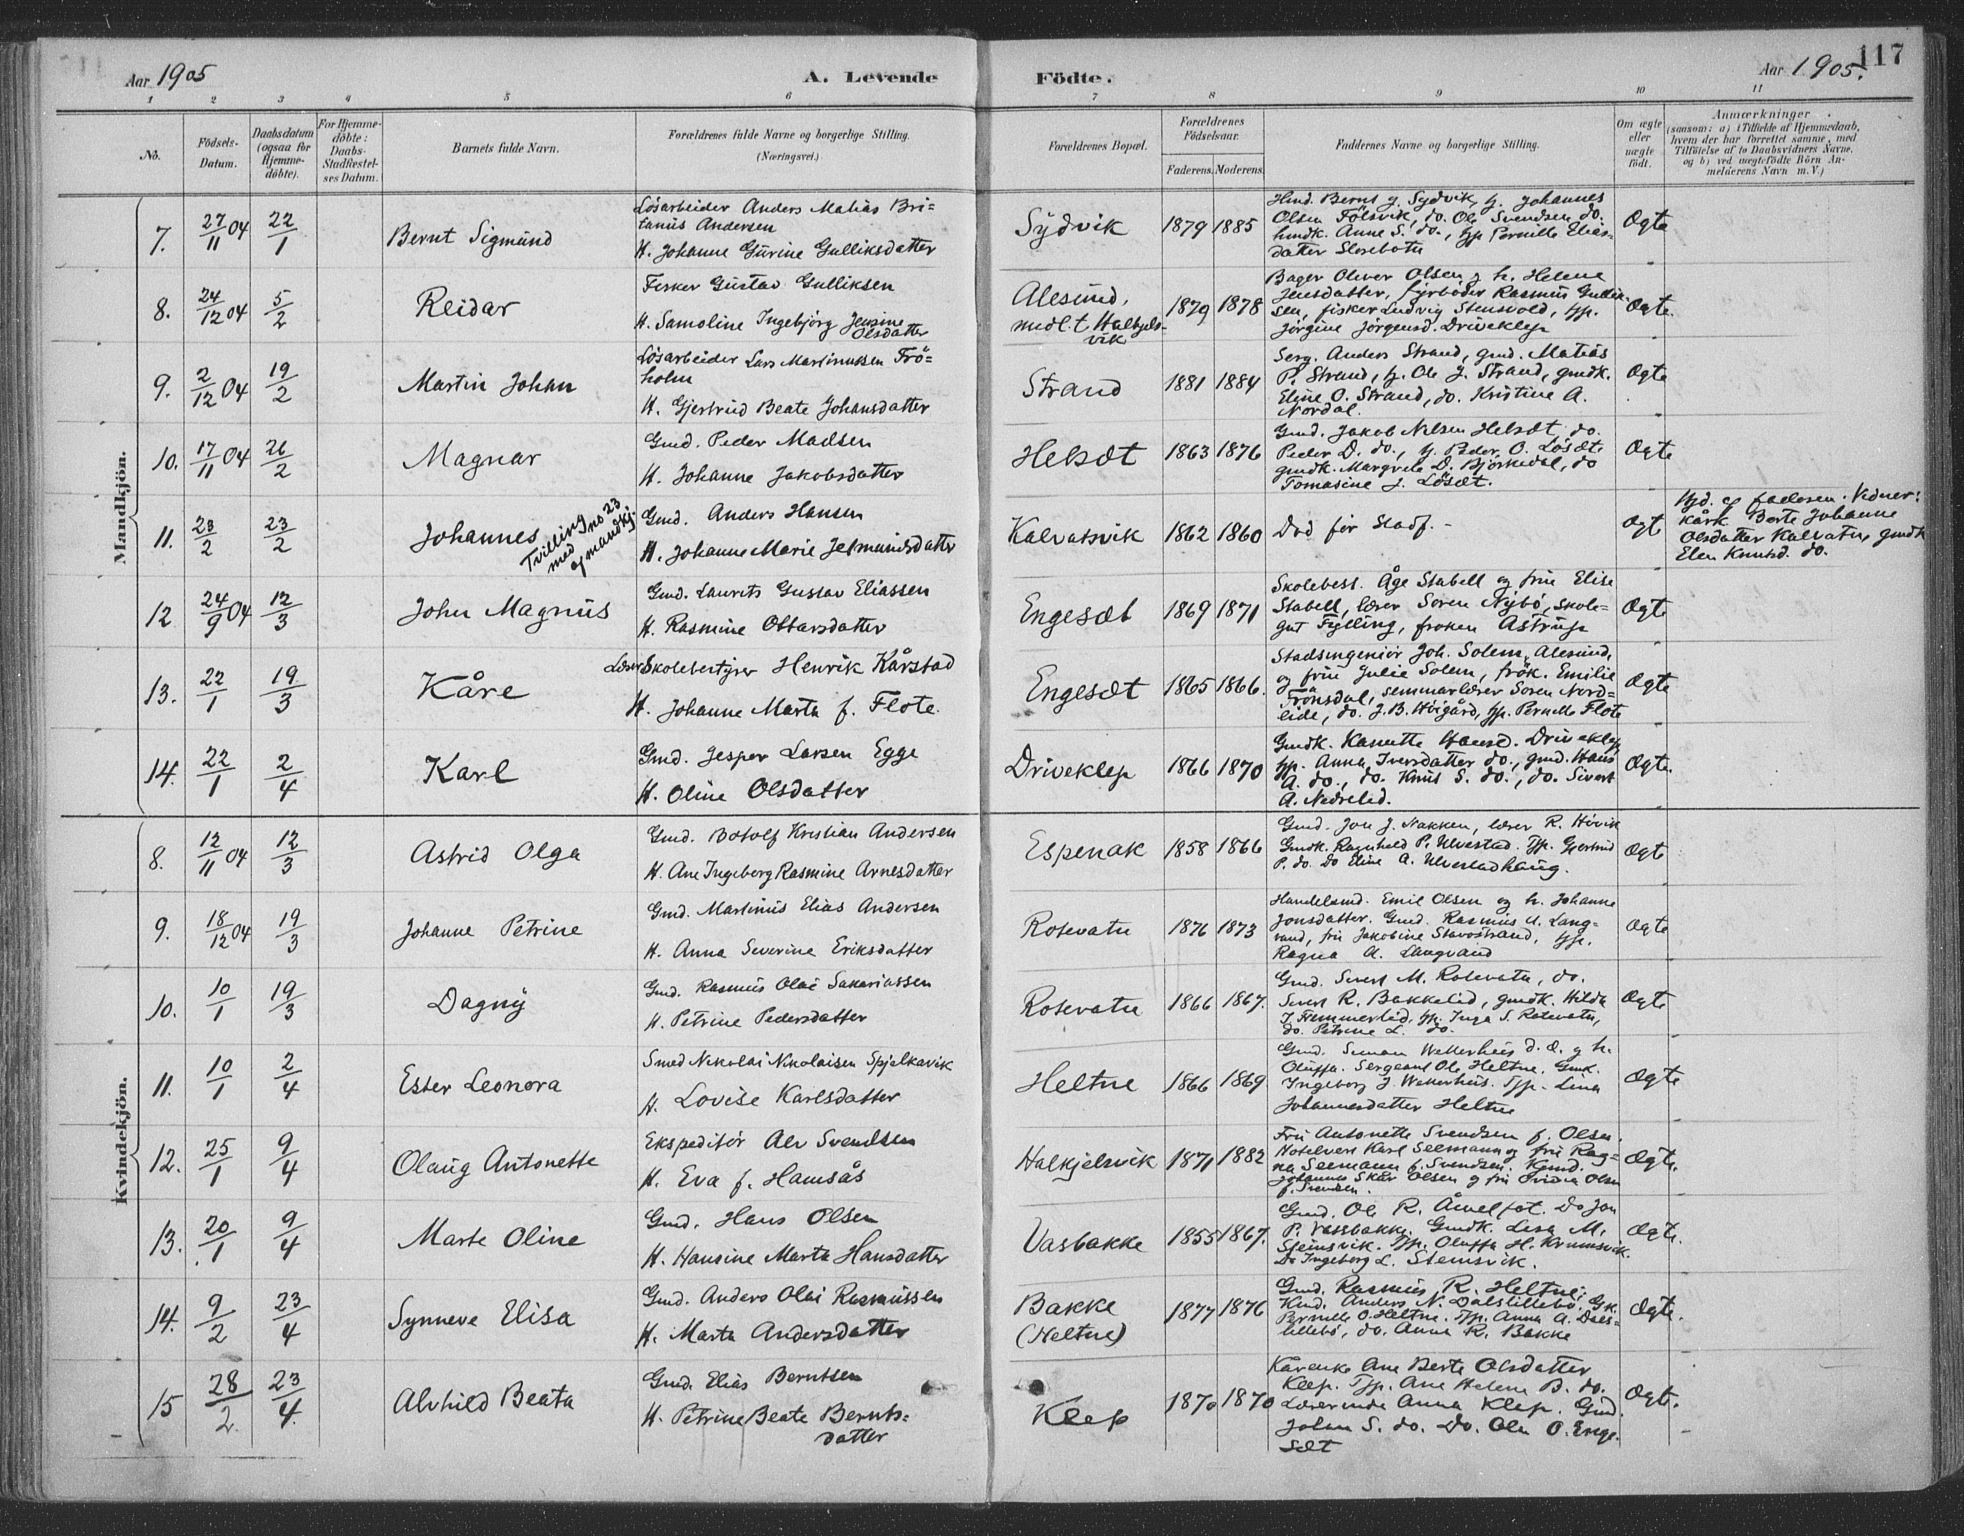 117
Aar 1905
A. Levende
Födte.
Aar 1905.
1 2 3 4 5 6 7 8 9 10 11
No.
Födsels-Datum.
Daabsdatum (ogsaa for Hjemme-döbte).
For Hjemme-döbte: Daabs-Stadfæstel-ses Datum.
Barnets fulde Navn.
Forældrenes fulde Navne og borgerlige Stilling.
(Næringsvei.)
Forældrenes Bopæl.
Forældrenes Födselsaar.
Faderens. Moderens.
Faddernes Navne og borgerlige Stilling.
Om ægte eller uægte födt.
Anmærkninger
(saasom: a) i Tilfælde af Hjemmedaab,
hvem der har forrettet samme, med
Tilföielse af to Daabsvidners Navne,
og b) ved uægtefödte Börn An-
melderens Navn m. V.)
Mandkjön.
7. 27/11 04 22/1 Bernt Sigmund
Lösarbeider Anders Matias Bri-
tanus Andersen
H. Johanne Gurine Gulliksdatter
Sydvik 1879 1885
Hmd. Bernt J. Sydvik, g. Johannes
Olsen Fölsvik, do. Ole Svendsen do.
hmdk. Anne S. do., pp Pernille Elias-
datter Storebotn
Ægte
8. 24/12 04 5/2 Reidar
Fisker Gustav Gulliksen
H. Samoline Ingebjörg Jensine
Olsdatter
Alesund,
midl. t Halkjels-
vik
1879 1878
Bager Oliver Olsen g h. Helene
Jensdatter, fyrböder Rasmus Gullik-
sen, fisker Ludvig Stensvold, pp.
Jörgine Jörgensd. Driveklep
Ægte.
9. 2/12 04 19/2 Martin Johan
Lösarbeider Lars Martinussen Frö-
holm
H. Gjertrud Beate Johansdatter
Strand 1881 1884
Serg. Anders Strand, gmd. Matias
P. Strand, g. Ole J. Strand, gmdk.
Eline O. Strand, do. Kristine A.
Nordal.
Ægte
10. 17/11 04 26/2 Magnar
Gmd. Peder Madsen
H. Johanne Jakobsdatter
Helset 1863 1876
Gmd. Jakob Nilsen Helset, do.
Peder D. do., g. Peder O. Löset
gmdk. Margrete D. Björkedal, do
Tomasine J. Löset.
Ægte
11. 23/2 23/2 Johannes
Tvilling
med no 23
af mandkj.
Gmd. Anders Hansen
H. Johanne Marie Jetmundsdatter
Kalvatsvik 1862 1860 Död för Stadf. -
Ægt
Hjd. af faderen. Vidner:
kårk Berte Johanne
Olsdatter Kalvatn, gmdk
Elen Knutsd. do.
12 24/9 04 12/3 John Magnus
Gmd. Laurits Gustav Eliassen
H. Rasmine Ottarsdatter
Engeset 1869 1871
Skolebest. Åge Stabell og frue Elise
Stabell, lærer Soren Nybö, skole-
gut Fylling, froken Astrup
Ægte
13. 22/1 19/3 Kåre
Lærer Skolebestyrer Henrik Kårstad
H. Johanne Marta f. Flote.
Engeset 1865 1866.
Stadsingeniör Joh. Solem, Alesund,
og frue Julie Solem, frök. Emilie
Fronsdal, semmarlærer Soren Nord-
eide, do. J. B. Höigård, pp. Pernille Flote
Ægte
14. 22/1 2/4 Karl
Gmd. Jesper Larsen Egge
H. Oline Olsdatter
Driveklep 1866 1870
Gmdk. Kanutte Hansd. Driveklep
pp. Anna Iversdatter do., gmd. Hans
A. do., do. Knut S. do., do. Sivert
A. Nedrelid.
Ægte.
Kvindekjön.
8. 12/11 04 12/3 Astrid Olga
Gmd. Botolf Kristian Andersen
H. Ane Ingeborg Rasmine Arnesdatter
Espenak 1858 1866
Gmd. Jon J. Nakken, lærer R. Hövik
Gmdk. Ragnhild P. Ulvestad. Pp. Gjertrud
P. do. Do Eline A. Ulvestadhaug.
Ægte
9. 18/12 04 19/3 Johanne Petrine
Gmd. Martinus Elias Andersen
H. Anna Severine Eriksdatter
Rotevatn 1876 1873
Handelsmd. Emil Olsen og h. Johanne
Jonsdatter. Gmd. Rasmus A. Lang-
vand, fru Jakobine Stavostrand, pp.
Ragna A. Langvand
Ægte
10. 10/1 19/3 Dagny
Gmd. Rasmus Olai Sakariassen
H. Petrine Pedersdatter
Rotevatn 1866 1867.
Gmd. Sivert M. Rotevatn, do.
Sivert R. Bakkelid, gmdk. Hilda
J. Hemmerlid, pp. Inga S. Rotevatn,
do. Petrine L. do.
Ægte
11. 10/1 2/4 Ester Leonora
Smed Nikolai Nikolaisen Spjelkavik
H. Lovise Karlsdatter
Heltne 1866 1869
Gmd. Simon Wellerhus d. æ. g h.
Oluffa. Sergeant Ole Heltne. Gmk.
Ingeborg J. Wellerhus. Pp. Lina
Johannesdatter Heltne
Ægte
12. 25/1 9/4 Olaug Antonette
Ekspeditör Alv Svendsen
H. Eva f. Hamsås
Halkjelsvik 1871 1882
Fru Antonette Svendsen f. Olsen.
Hotelvert Karl Seemann og fru Rag-
na Seemann f. Svendsen. Kjmd.
Johannes Skår Olsen g fru Ovidia Olsen
f. Svendsen.
Ægte.
13. 20/1 9/4 Marte Oline
Gmd. Hans Olsen
H. Hansine Marta Hansdatter
Vasbakke 1855 1867.
Gmd. Ole R. Åmelfot. Do Jon
P. Vassbakke. Gmdk. Lisa M.
Steinsvik. Pp. Oluffa H. Krumsvik.
Do Ingeborg L. Steinsvik.
Ægte.
14. 9/2 23/4 Synneve Elisa
Gmd. Anders Olai Rasmussen
H. Marta Andersdatter
Bakke
(Heltne)
1877 1876
Gmd. Rasmus R. Heltne,
Kmd. Anders N. Dalslillebö, Gk.
Pernille O. Heltne. Pp. Anna A. Dals-
lillebö, do. Anna R. Bakke
Ægte.
15 28/2 23/4 Alvhild Beata
Gmd. Elias Berntsen
H. Petrine Beate Bernts-
datter
Klep 1870 1870
Kårenke Ane Berte Olsdatter
Klep. Pp. Ane Helene B. do.
Lærerinde Anna Klep. Gmd.
Johan S. do. Do. Ole O. Enge-
set
Ægte.